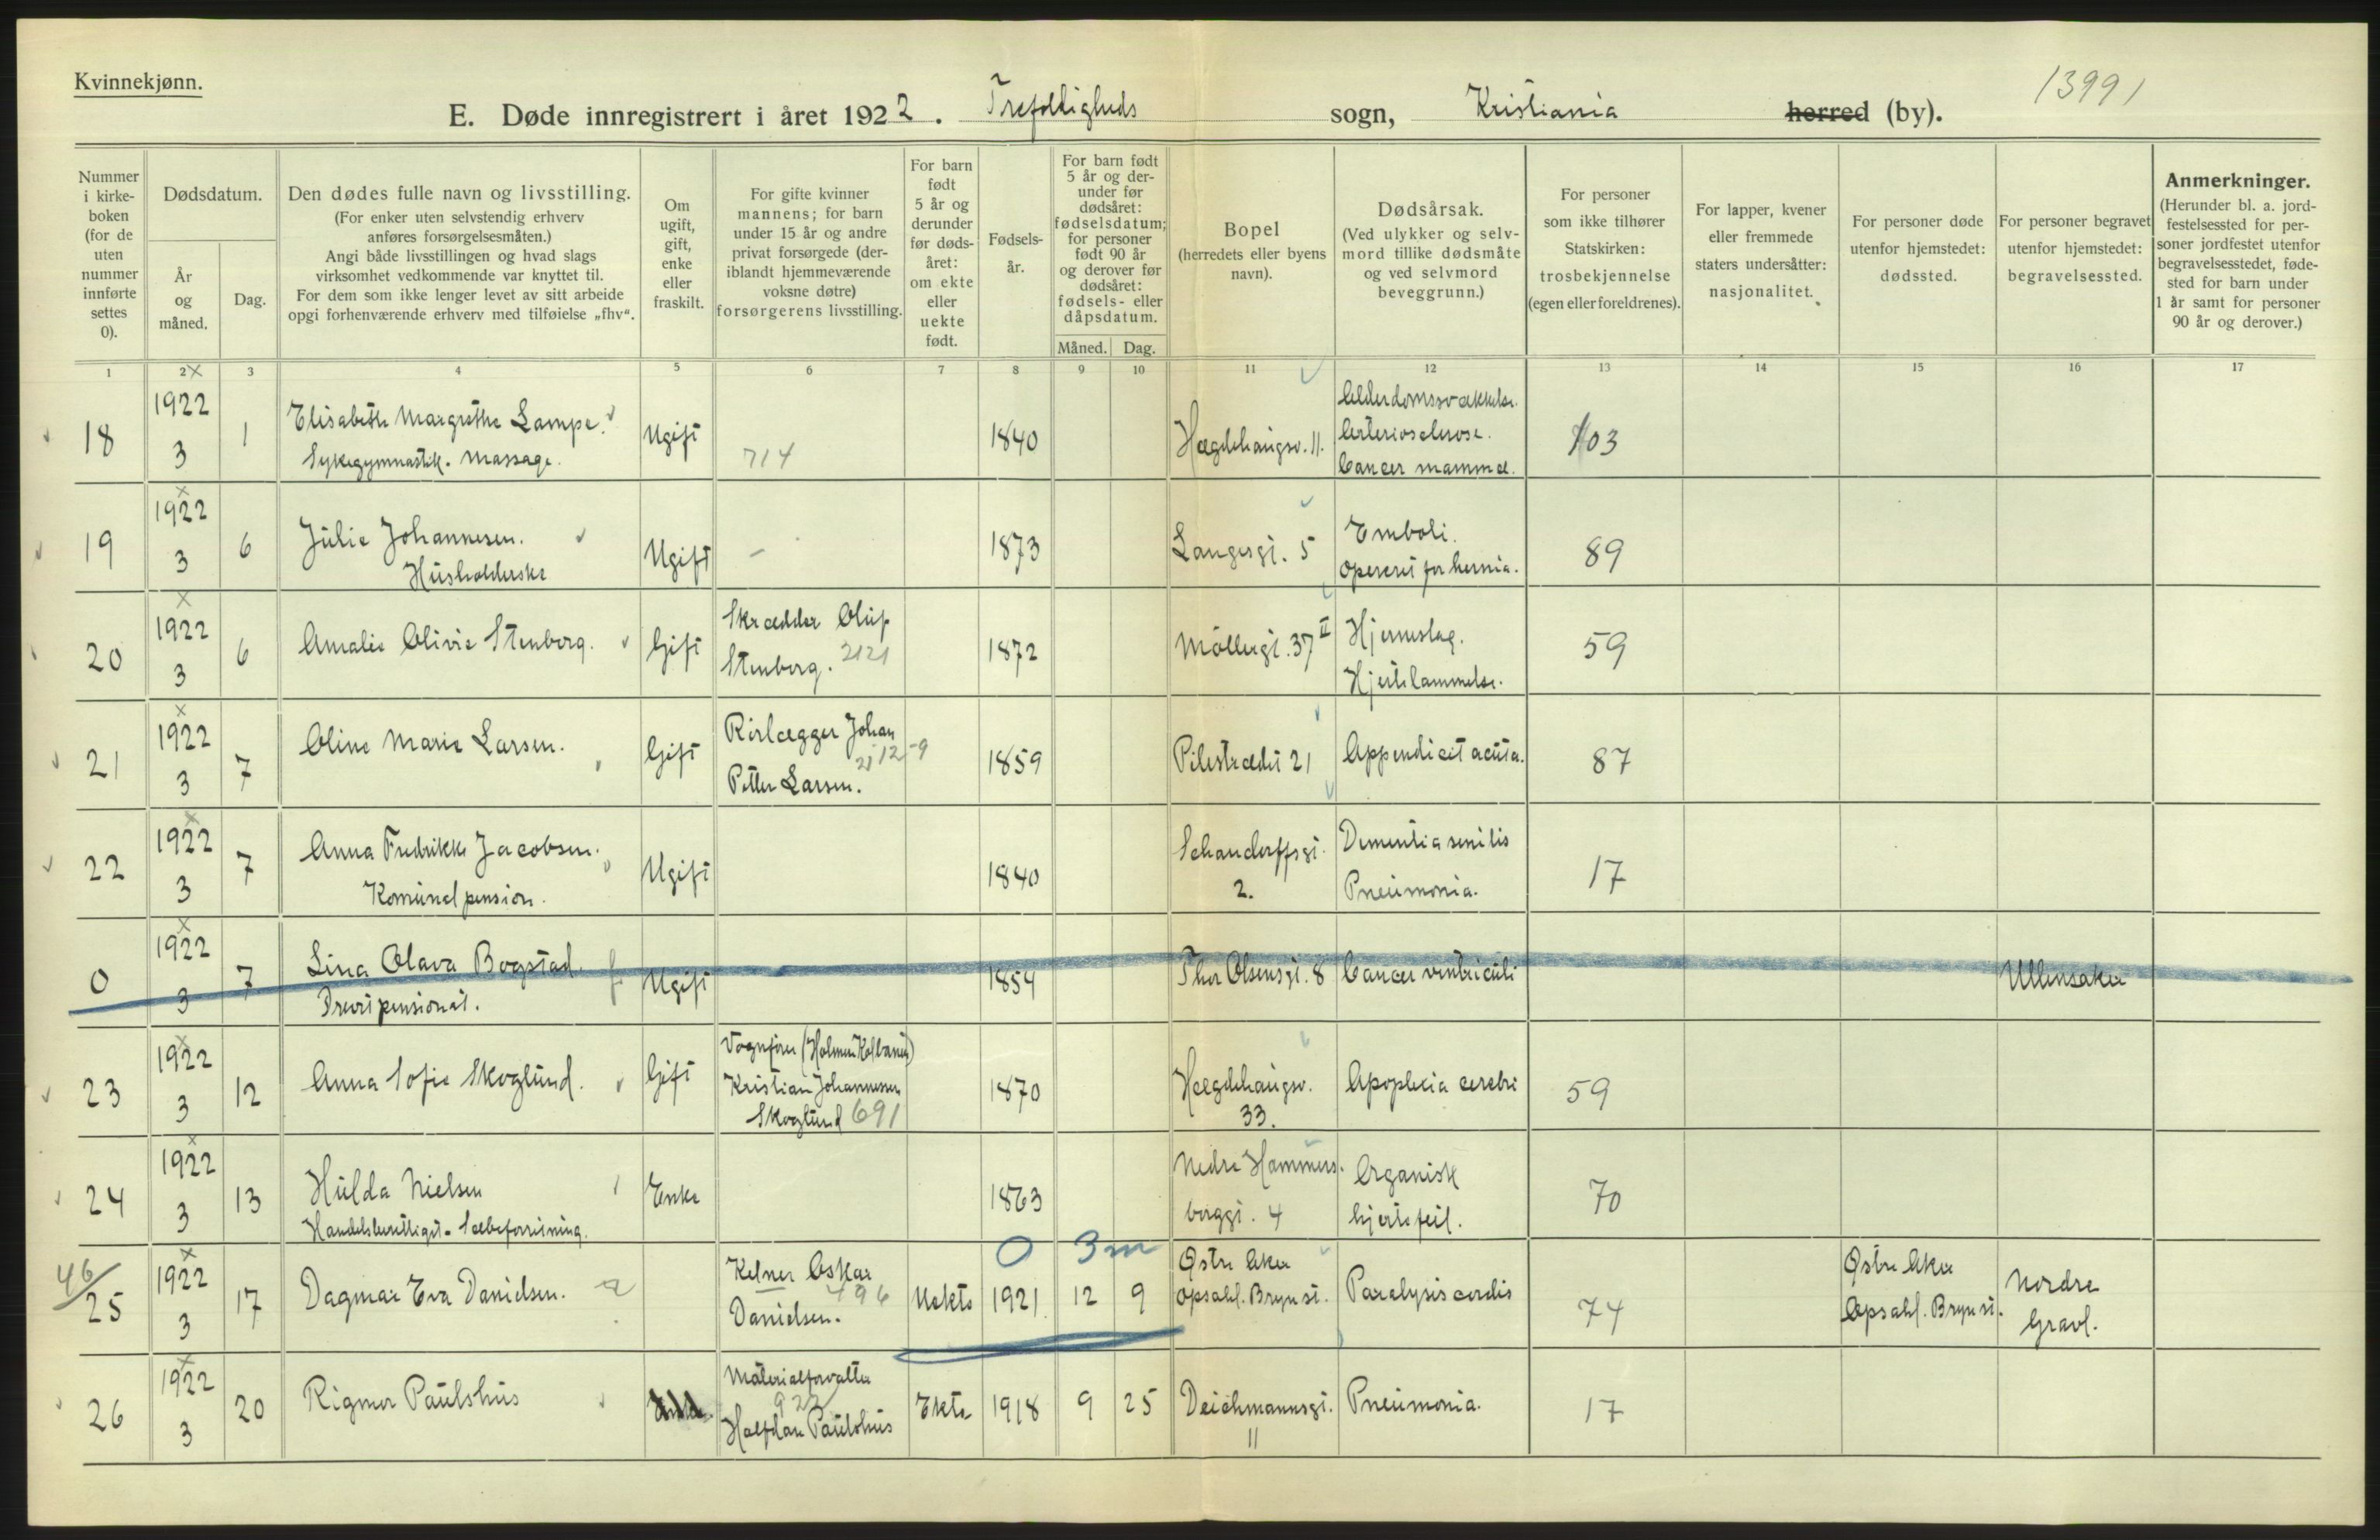 Kvinnekjønn.
13991
E. Døde innregistrert i året 1922. Trefoldigheds sogn, Kristiania herred (by).
Nummer i kirkeboken (for de uten nummer innførte settes 0).
Dødsdatum.
År og måned.
Dag.
Den dødes fulle navn og livsstilling.
(For enker uten selvstendig erhverv
anføres forsørgelsesmåten.)
Angi både livsstillingen og hvad slags
virksomhet vedkommende var knyttet til.
For dem som ikke lenger levet av sitt arbeide
opgi forhenværende erhverv med tilføielse „fhv“.
Om ugift, gift, enke eller fraskilt.
For gifte kvinner
mannens; for barn
under 15 år og andre
privat forsørgede (der-
iblandt hjemmeværende
voksne døtre)
forsørgerens livsstilling.
For barn født 5 år og derunder før døds-året: om ekte eller uekte født.
Fødsels-år.
For barn født
5 år og der-
under før
dødsåret:
fødselsdatum;
for personer
født 90 år
og derover før
dødsåret:
fødsels- eller
dåpsdatum.
Måned. Dag.
Bopel
(herredets eller byens
navn).
Dødsårsak.
(Ved ulykker og selv-
mord tillike dødsmåte
og ved selvmord
beveggrunn.)
For personer
som ikke tilhører
Statskirken:
trosbekjennelse
(egen eller foreldrenes).
For lapper, kvener
eller fremmede
staters undersåtter:
nasjonalitet.
For personer døde
utenfor hjemstedet:
dødssted.
For personer begravet
utenfor hjemstedet:
begravelsessted.
Anmerkninger.
(Herunder bl. a. jord-
festelsessted for per-
soner jordfestet utenfor
begravelsesstedet, føde-
sted for barn under
1 år samt for personer
90 år og derover.)
1 2 3 4 5 6 7 8 9 10 11 12 13 14 15 16 17
18 1922 3 1 Elisabeth Margrethe Lampe.
Sykegymnastik. Massage.
Ugift 714 1840 Hægdehaugsv. 11.
Alderdomssvækkelse.
Arteriosclerose.
Cancer mammæ.
103
19 1922 3 6 Julie Johannesen.
Husholderske
Ugift – 1873 Langesgt. 5
Emboli.
Operert for hernia.
89
20 1922 3 6 Amalie Olivie Stenberg. Gift
Skrædder Oluf
Stenberg. 2121
1872 Møllergt. 37 II
Hjerneslag.
Hjertelammelse.
59
21 1922 3 7 Oline Marie Larsen. Gift
Rørlægger Johan
Petter Larsen.
1859 Pilestrædet 21 Appendicit acuta. 87
22 1922 3 7 Anna Fredrikke Jacobsen.
Komunal pension.
Ugift 1840
Schandorffsgt.
2.
Dementia senilis
Pneumonia.
17
0 1922 3 7 Lina Olava Bogstad.
Ugift 1854 Thor Olsensgt. 8 Cancer ventriculi Ullensaker
23 1922 3 12 Anna Sofie Skoglund. Gift
Vognfører (Holmenkolbanen)
Kristian Johannessen
Skoglund 691
1870
Hægdehaugsv.
33.
Apoplexia cerebri 59
24 1922 3 13 Hulda Nielsen
Handelsberettiget – Sæbeforretning.
Enke 1863
Nedre Hammers-
borggt. 4
Organisk
hjertefeil.
70
46
25 1922 3 17 Dagmar Eva Danielsen.
Kelner Oskar
496
Danielsen.
Uekte 0 3 m
1921 12 9
Østre Aker
Opsahl. Bryn st.
Paralysis cordis 74
Østre Aker
Opsahl. Bryn st.
Nordre
Gravl.
26 1922 3 20 Rigmor Paulshus
Materialforvalter
922
Halfdan Paulshus
Ekte 1918 9 25
Deichmannsgt.
11
Pneumonia. 17